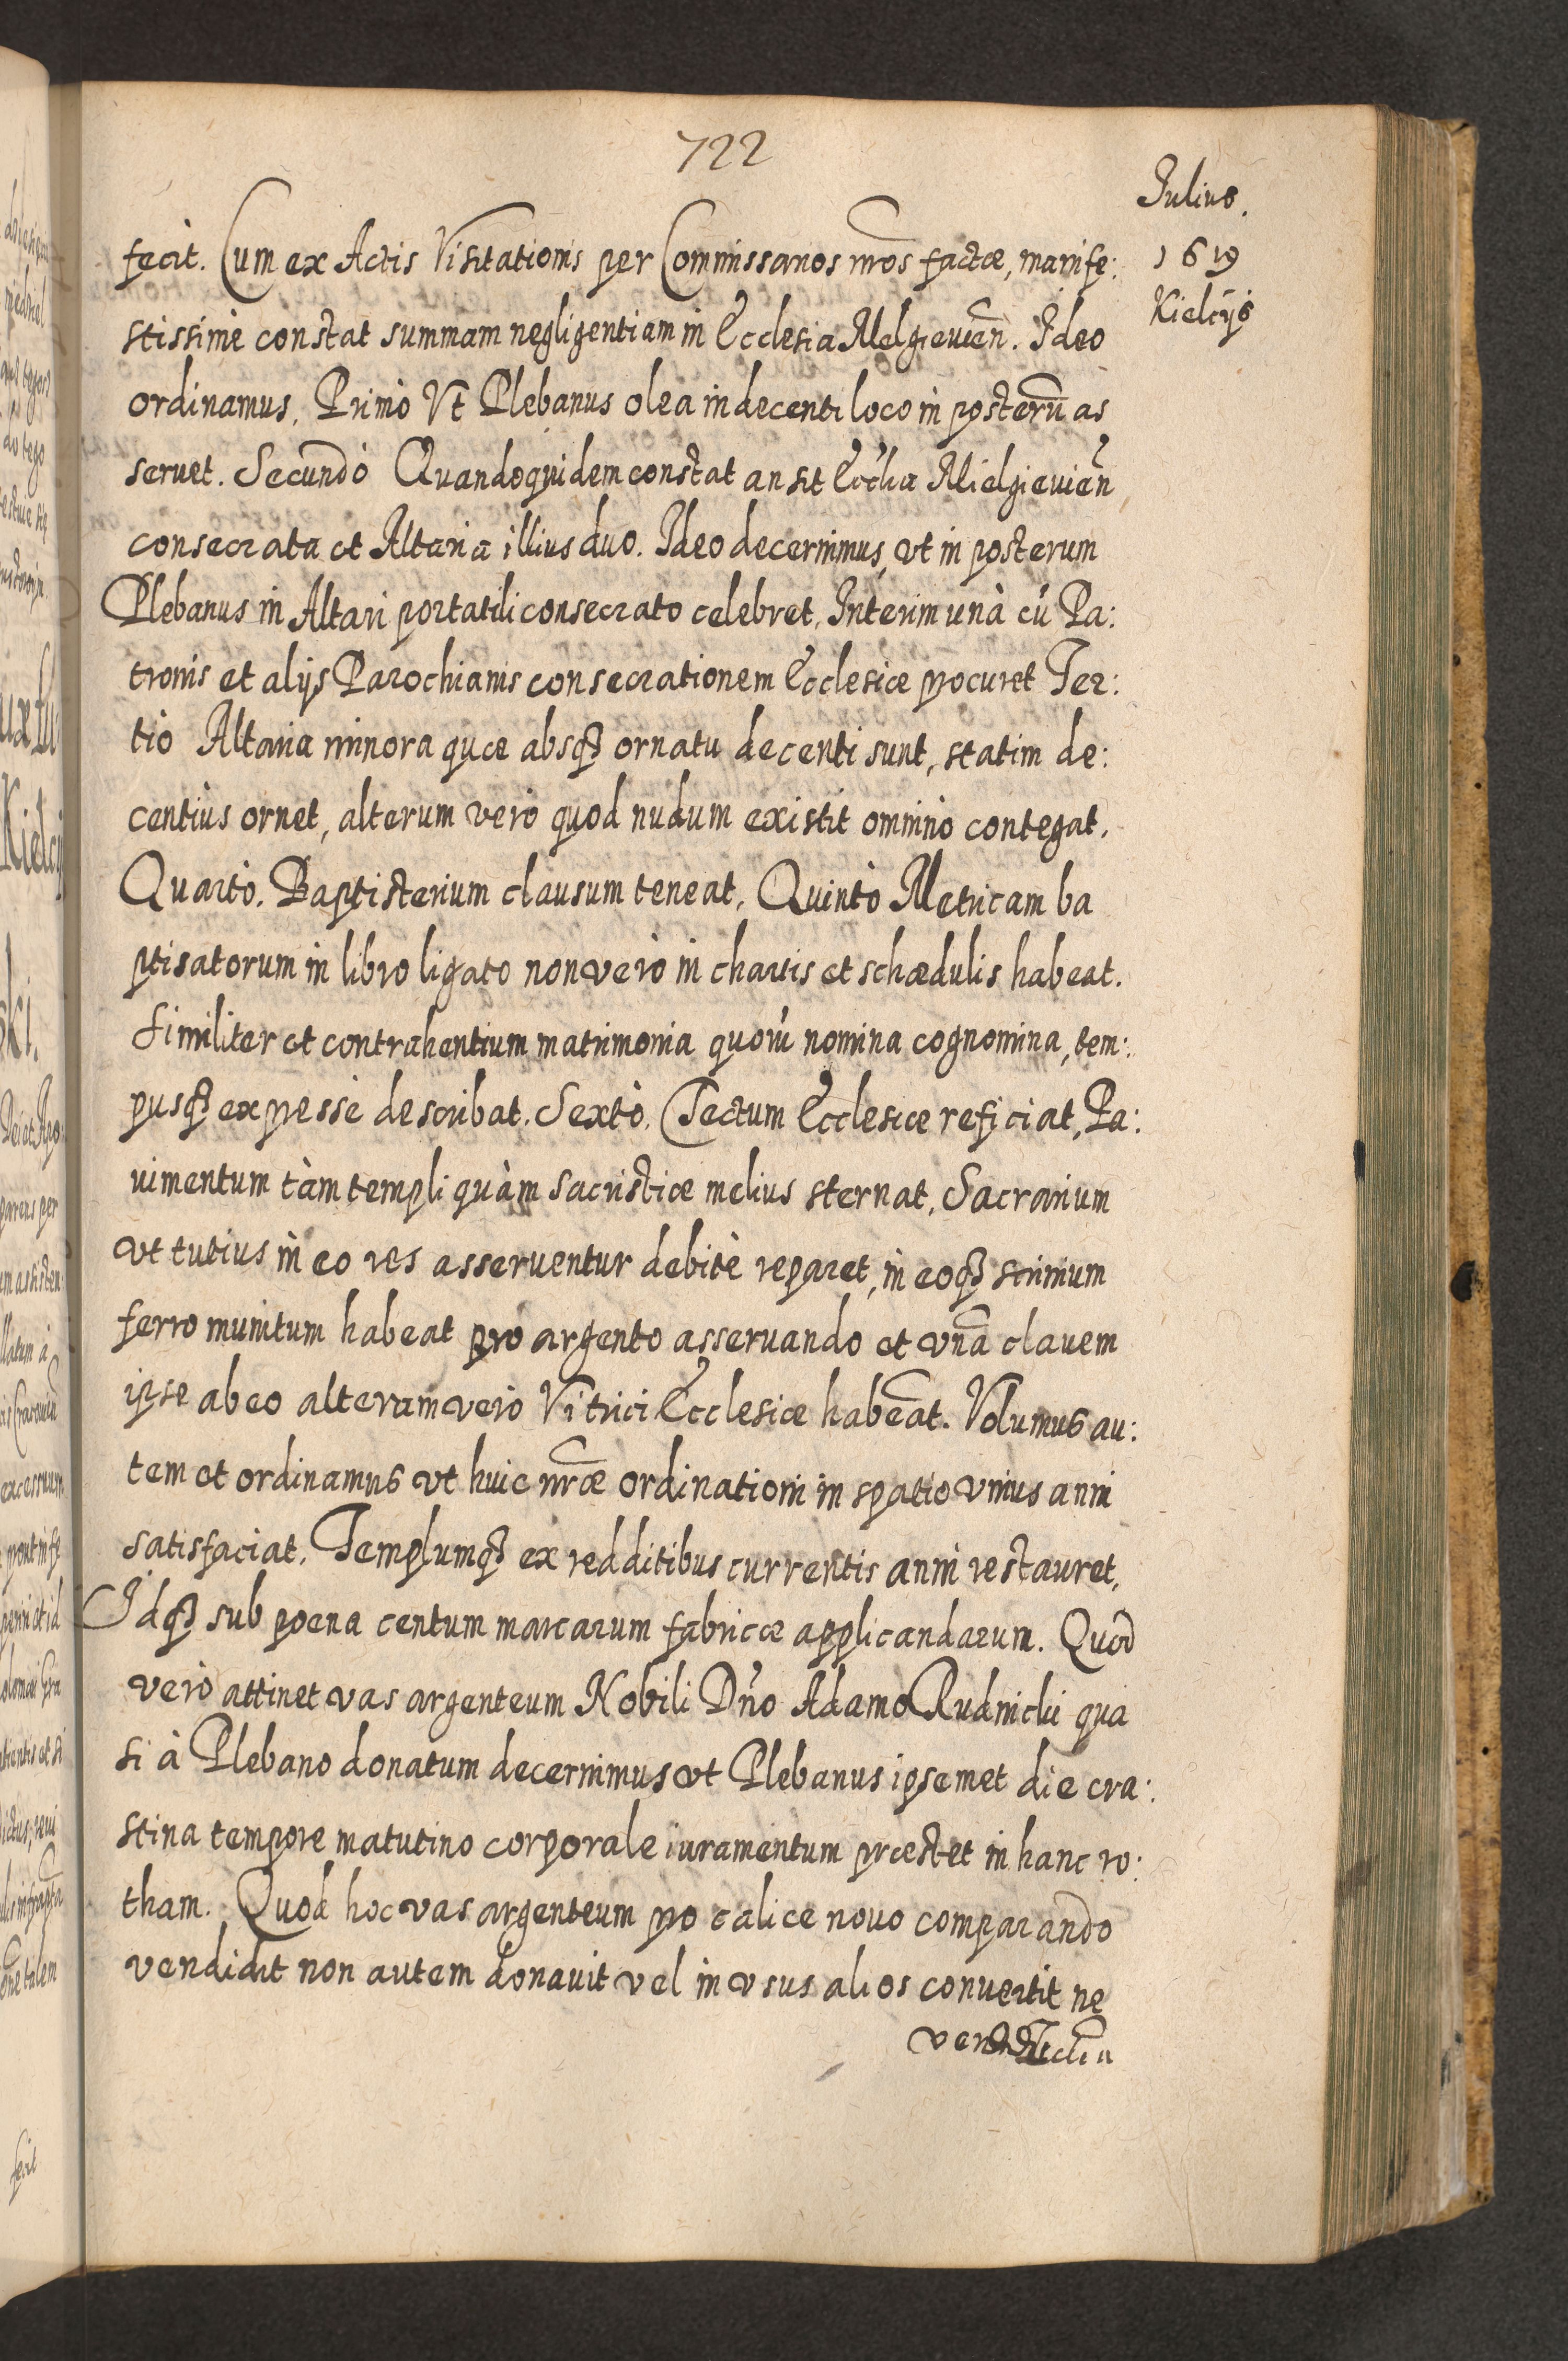 722
Julius.
1619
Kielcijs
fecit. Cum ex Actis Visitationis per Commissarios nr̃os factæ, manife:
stissimè constat summam negligentiam in Ecclesia Melgieuień. Ideo
ordinamus. Primò Vt Plebanus olea in decenti loco in posterū as
seruet. Secundò Quandoquidem constat an sit Eccĺia Mielgieuień
consecrata et Altaria illius duo. Ideo decernimus, vt in posterum
Plebanus in Altari portatili consecrato celebret. Interim unà cū Pa:
tronis et alijs Parochianis consecrationem Ecclesiæ procuret Ter:
tio Altaria minora quæ absq₃ ornatu decenti sunt, statim de:
centiùs ornet, alterum verò quod nudum existit omninò contegat.
Quartò. Baptisterium clausum teneat. Quintò Metricam ba
ptisatorum in libro ligato non verò in chartis et schædulis habeat.
Similiter et contrahentium matrimonia quorū nomina cognomina, tem:
pusq₃ expressè describat. Sextò. Tectum Ecclesiæ reficiat, Pa:
uimentum tàm templi quàm Sacristiæ melius sternat, Sacrarium
vt tutius in eo res asseruentur debitè reparet, in eoq₃ scrinium
ferro munitum habeat pro argento asseruando et vnā clauem
ipse ab eo alteram verò Vitrici Ecclesiæ habeāt. Volumus au:
tem et ordinamus vt huic nr̃æ ordinationi in spatio vnius anni
satisfaciat. Templumq₃ ex redditibus currentis anni restauret,
Idq₃ sub poena centum marcarum fabricæ applicandarum. Quod
verò attinet vas argenteum Nobili Dño Adamo Rudnicki qua
si à Plebano donatum decernimus vt Plebanus ipsemet die cra:
stina tempore matutino corporale iuramentum præstet in hanc ro:
tham. Quod hoc vas argenteum pro calice nouo comparando
vendidit non autem donauit vel in vsus alios conuertit ne